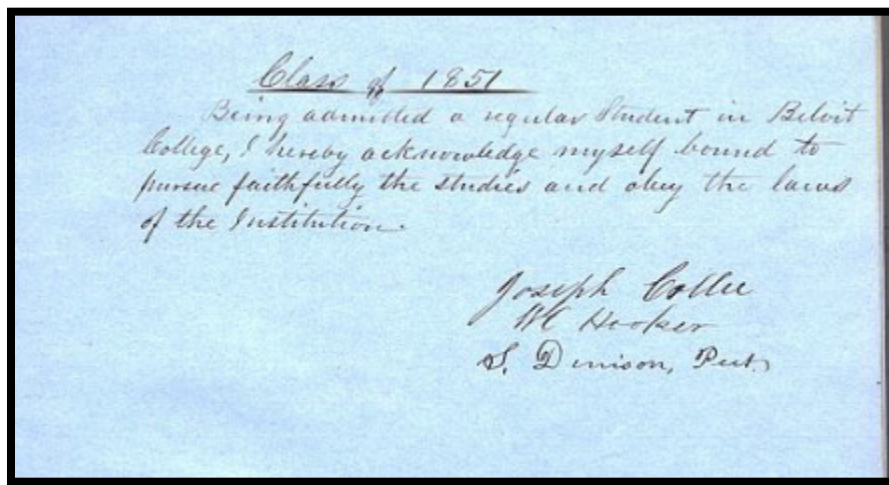 Class of 1851
Being admitted a regular Student in Beloit
College, I hereby acknowledge myself bound to
pursue faithfully the studies and obey the laws
of the Institution.
Joseph Collie
W C Hooker
S. D. Peet.